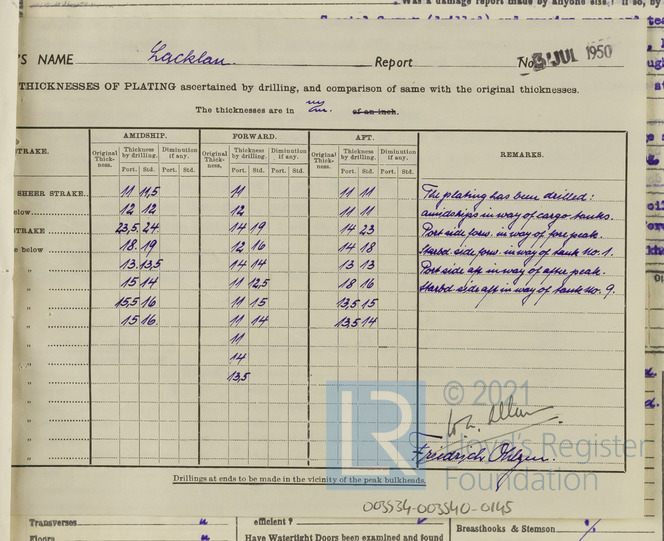 Was a damage report made by anyone else? If so, by
'S NAME Lacklan. Report No. 31 JUL 1950
THICKNESSES OF PLATING ascertained by drilling, and comparison of same with the original thicknesses.
The thicknesses are in of an inch.
TRAKE. AMIDSHIP. FORWARD. AFT. REMARKS.
Original Thickness. Thickness by drilling. Diminution if any. Original Thickness. Thickness by drilling. Diminution if any. Original Thickness. Thickness by drilling. Diminution if any.
Port. Std. Port. Std. Port. Std. Port. Std. Port. Std. Port. Std.
SHEER STRAKE.. 11 11,5 11 11 11 The plating has been drilled:
elow 12 12 12 11 11 amidships in way of cargo tanks.
TRAKE 23,5 24 14 19 14 23 Port side forw. in way of fore peak.
e below 18 19 12 16 14 18 Starbd side forw. in way of tank No. 1.
" 13 13,5 14 14 13 13 Port side aft in way of after peak.
" 15 14 11 12,5 18 16 Starbd side aft in way of tank No. 9.
" 15,5 16 11 15 13,5 15
" 15 16 11 14 13,5 14
" 11
" 14
" 13,5
"
"
"
"
© 2021
LR Lloyd's Register
Foundation
Friedrich
Drillings at ends to be made in the vicinity of the peak bulkheads.
003534-003540-0145
Transverses " efficient? Breasthooks & Stemson
Floors " Have Watertight Doors been examined and found